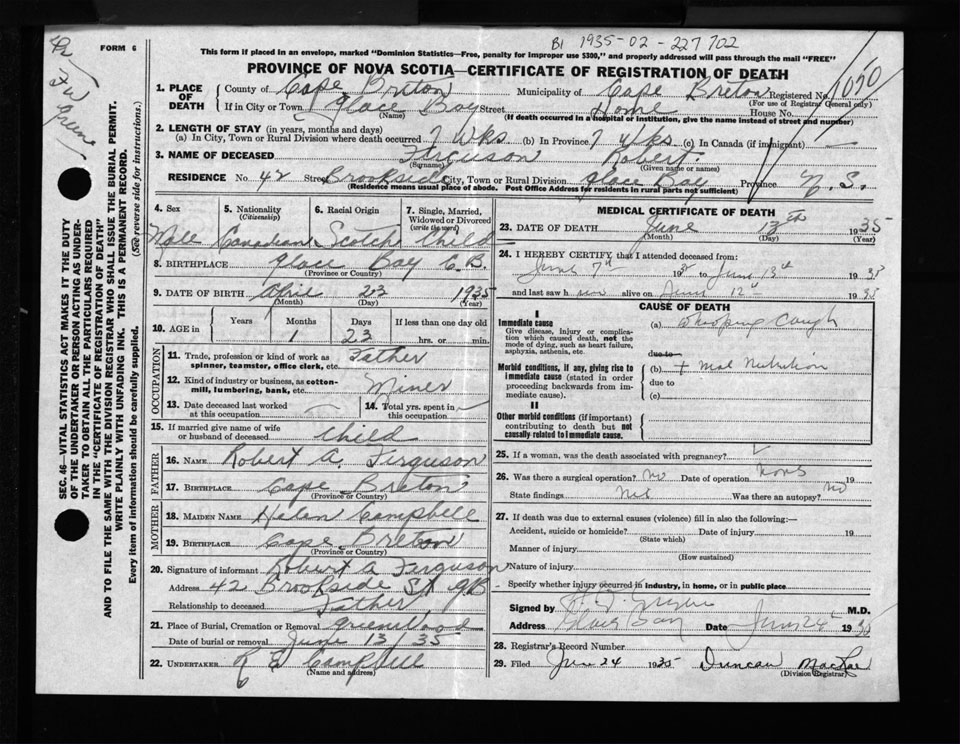 B1 1935-02-227702
FORM 6
This form if placed in an envelope, marked "Dominion Statistics—Free, penalty for improper use $300," and properly addressed will pass through the mail "FREE"
PROVINCE OF NOVA SCOTIA—CERTIFICATE OF REGISTRATION OF DEATH
1050
SEC. 46—VITAL STATISTICS ACT MAKES IT THE DUTY
OF THE UNDERTAKER OR PERSON ACTING AS UNDER-
TAKER TO OBTAIN ALL THE PARTICULARS REQUIRED
IN THE "CERTIFICATE OF REGISTRATION OF DEATH"
AND TO FILE THE SAME WITH THE DIVISION REGISTRAR WHO SHALL ISSUE THE BURIAL PERMIT.
WRITE PLAINLY WITH UNFADING INK. THIS IS A PERMANENT RECORD.
Every item of information should be carefully supplied. (See reverse side for instructions.)
1. PLACE OF DEATH
County of Cape Breton Municipality of Cape Breton Registered No.
(For use of Registrar General only)
If in City or Town Glace Bay Street Home House No.
(Name) (If death occurred in a hospital or institution, give the name instead of street and number)
2. LENGTH OF STAY (in years, months and days)
(a) In City, Town or Rural Division where death occurred 7 wks (b) In Province 7 wks (c) In Canada (if immigrant) —
3. NAME OF DECEASED Ferguson Robert
(Surname) (Given name or names)
RESIDENCE No. 42 Street Brookside City, Town or Rural Division Glace Bay Province N.S.
(Residence means usual place of abode. Post Office Address for residents in rural parts not sufficient)
4. Sex 5. Nationality 6. Racial Origin 7. Single, Married,
(Citizenship) Widowed or Divorced
(write the word)
Male Canadian Scotch Child
8. BIRTHPLACE Glace Bay C.B.
(Province or Country)
9. DATE OF BIRTH April 23 1935
(Month) (Day) (Year)
10. AGE in Years Months Days If less than one day old
1 23 hrs. or min.
OCCUPATION
11. Trade, profession or kind of work as Father
spinner, teamster, office clerk, etc.
12. Kind of industry or business, as cotton-
mill, lumbering, bank, etc. Miner
13. Date deceased last worked at this occupation — 14. Total yrs. spent in this occupation —
15. If married give name of wife
or husband of deceased Child
FATHER
16. NAME Robert A. Ferguson
17. BIRTHPLACE Cape Breton
(Province or Country)
MOTHER
18. MAIDEN NAME Helen Campbell
19. BIRTHPLACE Cape Breton
(Province or Country)
20. Signature of informant Robert A Ferguson
Address 42 Brookside St G.B
Relationship to deceased Father
21. Place of Burial, Cremation or Removal Greenwood
Date of burial or removal June 13/35
22. UNDERTAKER R E Campbell
(Name and address)
MEDICAL CERTIFICATE OF DEATH
23. DATE OF DEATH June 13th 1935
(Month) (Day) (Year)
24. I HEREBY CERTIFY that I attended deceased from:
June 7th to June 13th 1935
and last saw him alive on June 12th 1935
CAUSE OF DEATH
I
Immediate cause (a) Whooping Cough
Give disease, injury or complica-
tion which caused death, not the
mode of dying, such as heart failure,
asphyxia, asthenia, etc.
due to
Morbid conditions, if any, giving rise to (b) + Mal Nutrition
immediate cause (stated in order due to
proceeding backwards from im-
mediate cause). (c)
II
Other morbid conditions (if important)
contributing to death but not
causally related to immediate cause.
25. If a woman, was the death associated with pregnancy?
26. Was there a surgical operation? No Date of operation None 19
State findings Was there an autopsy? No
27. If death was due to external causes (violence) fill in also the following:—
Accident, suicide or homicide? Date of injury 19
(State which)
Manner of injury
(How sustained)
Nature of injury
Specify whether injury occurred in industry, in home, or in public place
Signed by M.D.
Address Glace Bay Date June 24th 1935
28. Registrar's Record Number
29. Filed June 24 1935 Duncan MacRae
(Division Registrar)